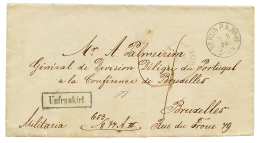 Mr A Palmeirim
Général de Division Délégué du Portugal
a la Conférence de Bruxelles
Unfrankirt
Bruxelles
Militaria
Rue du Trone 79